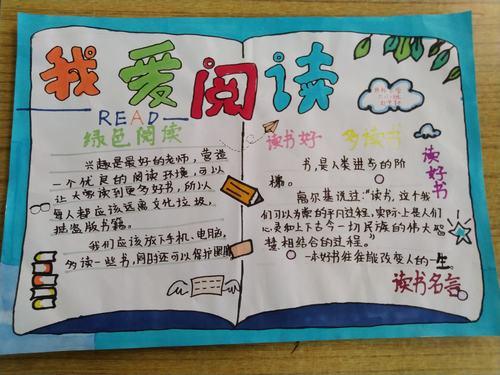 我爱阅读
READ
绿色阅读
兴趣是最好的老师，营造
一个优良的阅读环境，可以
让大家读到更多好书，所以
每人都应该远离文化垃圾，
抵盗版书籍。
我们应该放下手机、电脑，
多读一些书，同时还可以保护眼睛
读书好
多读书
读好书
书，是人类进步的阶
梯。
高尔基说过："读书，这个我
们习以为常的平凡过程，实际上是人们
心灵和上下古今一切民族的伟大智
慧相结合的过程。"
一本好书往往能改变人的一生。
读书名言